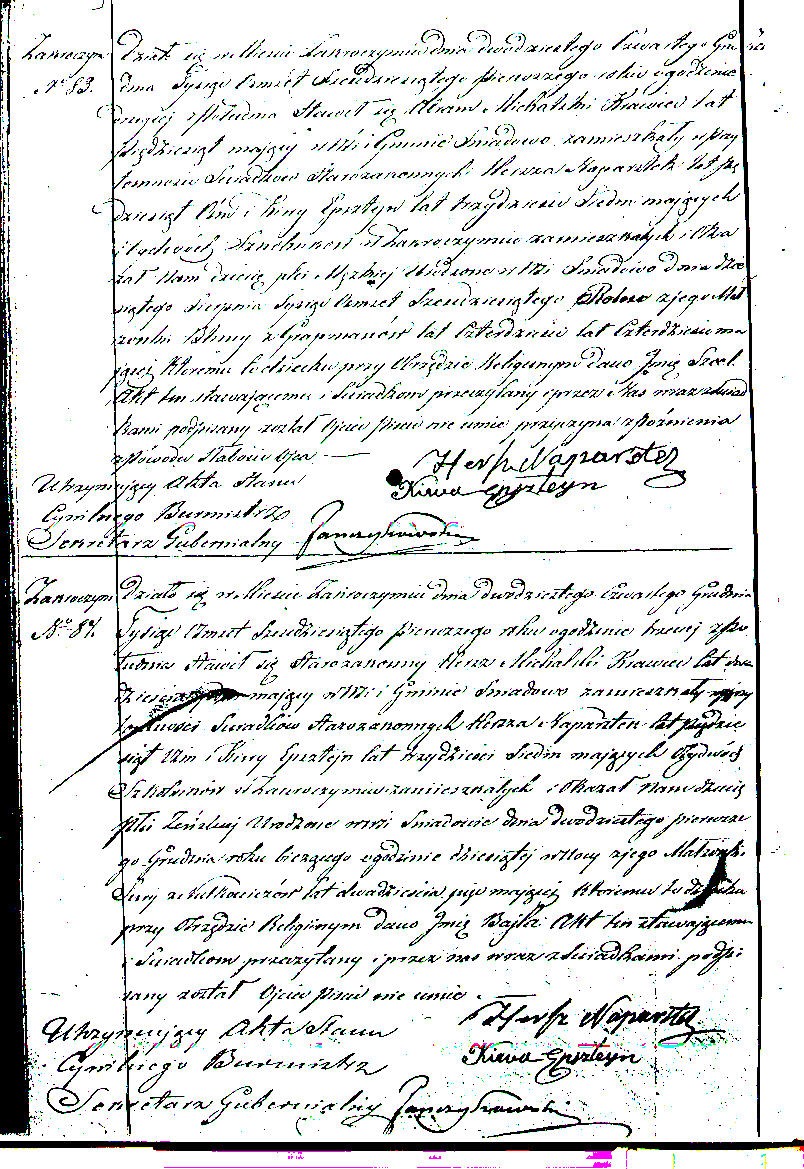 Zakroczym
No 83.
Działo się w Mieście Zakroczymiu dnia dwudziestego Czwartego Grudnia
dnia Tysiąc Ośmset Sześćdziesiątego pierwszego roku o godzinie
drugiej z południa Stawił się Abram Michalski Krawiec lat
pięćdziesiąt mający w Wsi i Gminie Śniadowo zamieszkały w przy
tomności Świadków Starozakonnych Hersza Naparstek lat pię
dziesiąt Ośm i Kiwy Epsztejn lat trzydzieści Siedm mających
obydwóch Szkolników w Zakroczymiu zamieszkałych i Oka
zał Nam dziecię płci Męzkiej Urodzone w Wsi Śniadowo dnia dzie
siątego Sierpnia Tysiąc Ośmset Sześćdziesiątego Roku z jego Mał
żonki Blimy z lat Czterdzieści lat Czterdzieści ma
jącej Któremu to dziecku przy Obrządzie Religijnym dano Imię
Akt ten stawającemu i Świadkom przeczytany i przez Nas wraz z Świad
kami podpisany został Ojciec pisać nie umie przyczyna spóźnienia
z powodu Słabości Ojca —
Hersz Naparstek
Kiwa Epszteyn
Utrzymujący Akta Stanu
Cywilnego Burmistrz
Sekretarz Gubernialny
Zakroczym
No 84.
Działo się w Mieście Zakroczymiu dnia dwudziestego Czwartego Grudnia
Tysiąc Ośmset Sześćdziesiątego pierwszego roku o godzinie trzeciej z po
łudnia Stawił się Starozakonny Hersz Michalski Krawiec lat dwa
dzieścia mający w Wsi i Gminie Śniadowo zamieszkały w przy
tomności Świadków Starozakonnych Hersza Naparstek lat pięćdzie
siąt Ośm i Kiwy Epsztejn lat trzydzieści Siedm mających Obydwóch
Szkolników w Zakroczymiu zamieszkałych i okazał Nam dziecię
płci Żeńskiej Urodzone w wsi Śniadowie dnia dwudziestego pierwsze
go Grudnia roku bieżącego o godzinie dziesiątej w Nocy z jego Małżonki
Sury z lat dwadzieścia mającej Któremu to dziecku
przy Obrządzie Religijnym dano Imię Bajla Akt ten stawającemu
i Świadkom przeczytany i przez nas wraz z Świadkami podpi
sany został Ojciec pisać nie umie.
Hersz Naparstek
Kiwa Epszteyn
Utrzymujący Akta Stanu
Cywilnego Burmistrz
Sekretarz Gubernialny